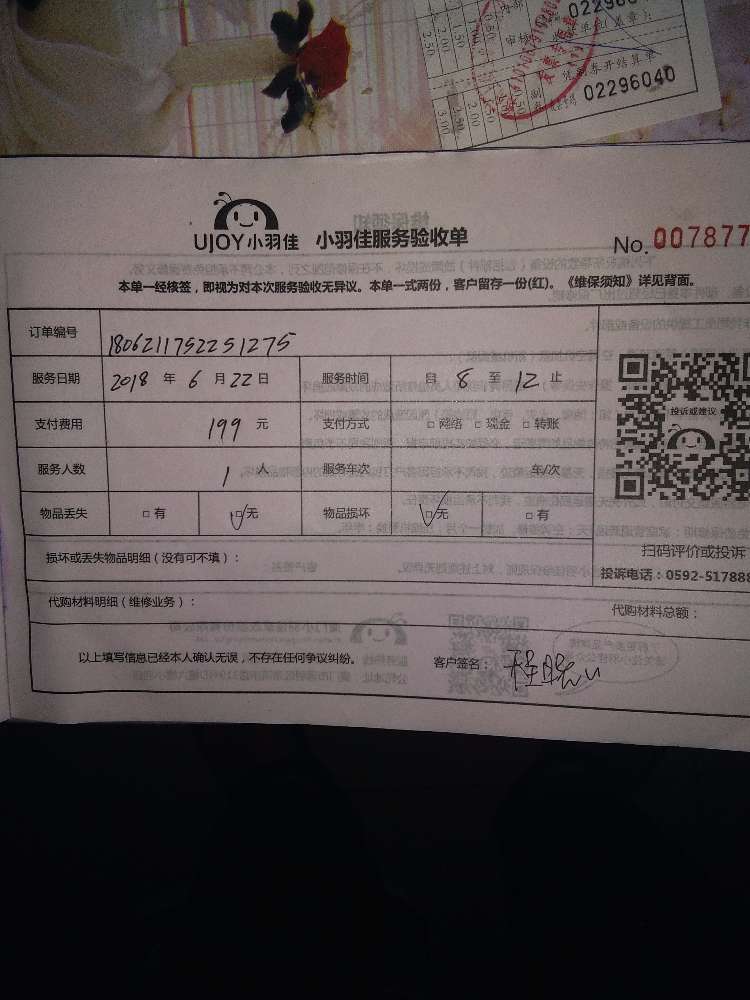 内部
022960
审核
凭副券开结算单
副
02296040
2.50
2.50
2.00
3.00
UJOY小羽佳 小羽佳服务验收单
No. 007877
本单一经核签，即视为对本次服务验收无异议。本单一式两份，客户留存一份(红)。《维保须知》详见背面。
订单编号 1806211752251275
服务日期 2018 年 6 月 22 日 服务时间 自 8 至 12 止
支付费用 199 元 支付方式 □ 网络 □ 现金 □ 转账
服务人数 1 人 服务车次 年/次
物品丢失 □ 有 □ 无 物品损坏 □ 无 □ 有
投诉或建议
扫码评价或投诉
投诉电话：0592-517888
损坏或丢失物品明细（没有可不填）：
代购材料明细（维修业务）：
代购材料总额：
以上填写信息已经本人确认无误，不存在任何争议纠纷。 客户签名：